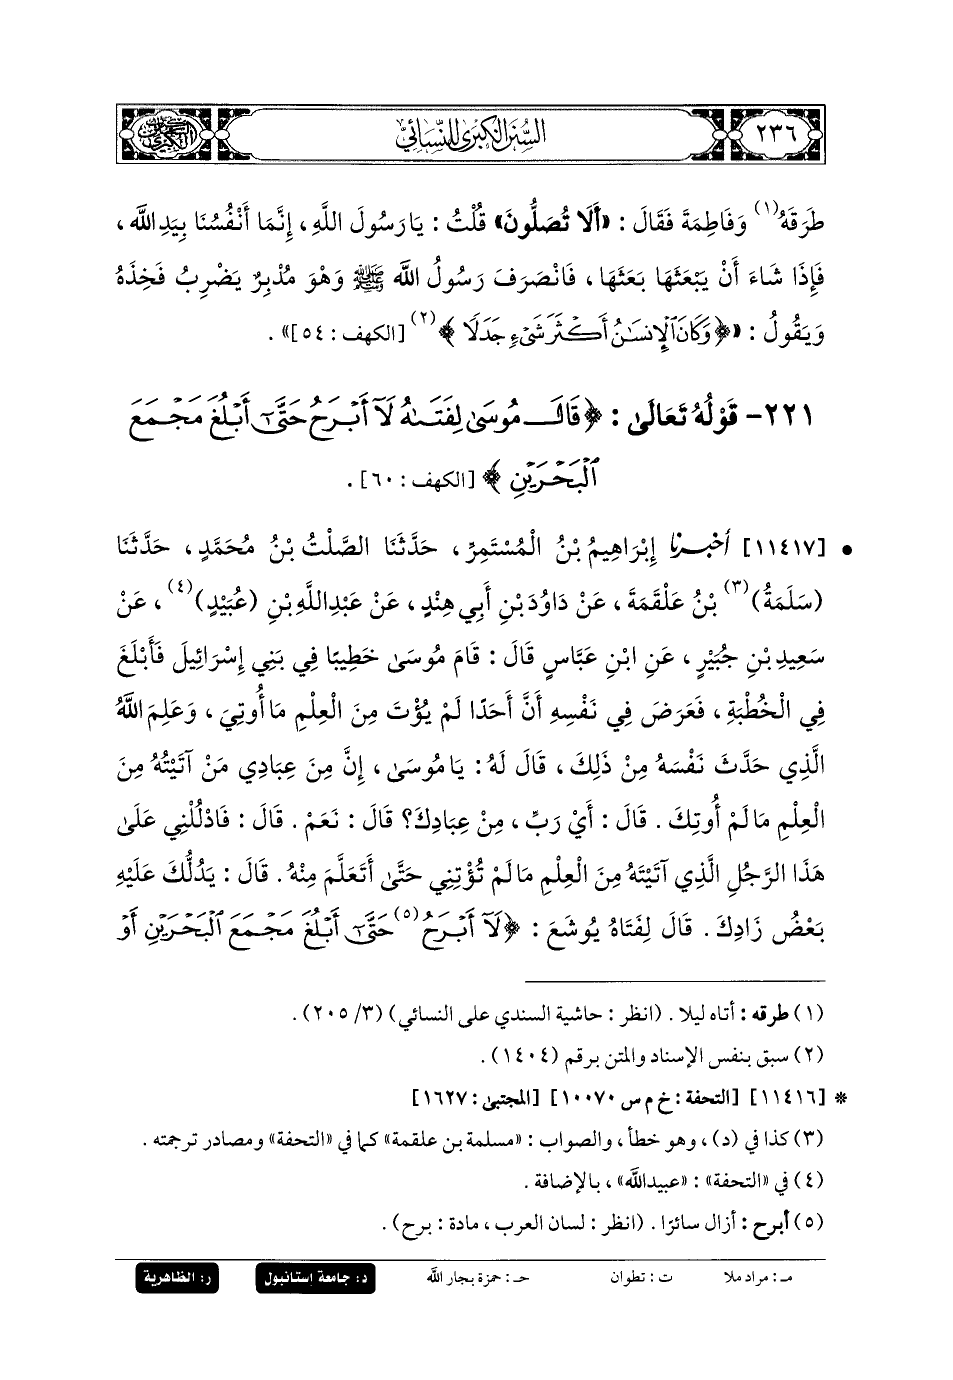 ٢٣٦
السنن الكبرى للنسائي
طَرَقَهُ(١) وَفَاطِمَةَ فَقَالَ : «أَلَا تُصَلُّونَ» قُلْتُ : يَا رَسُولَ اللَّهِ ، إِنَّمَا أَنْفُسُنَا بِيَدِ اللَّه ،
فَإِذَا شَاءَ أَنْ يَبْعَثَهَا بَعَثَهَا ، فَانْصَرَفَ رَسُولُ اللَّه ﷺ وَهْوَ مُدْبِرٌ يَضْرِبُ فَخِذَهُ
وَيَقُولُ : «﴿وَكَانَ ٱلْإِنسَـٰنُ أَكْثَرَ شَىْءٍ جَدَلًا ﴾(٢) [الكهف : ٥٤]» .
٢٢١- قَوْلُهُ تَعَالَى : ﴿قَالَ مُوسَى لِفَتَىٰهُ لَآ أَبْرَحُ حَتَّىٰٓ أَبْلُغَ مَجْمَعَ
ٱلْبَحْرَيْنِ ﴾ [الكهف : ٦٠] .
• [١١٤١٧] أخبرنا إِبْرَاهِيمُ بْنُ الْمُسْتَمِرِّ ، حَدَّثَنَا الصَّلْتُ بْنُ مُحَمَّدٍ ، حَدَّثَنَا
(سَلَمَةُ)(٣) بْنُ عَلْقَمَةَ ، عَنْ دَاوُدَ بْنِ أَبِي هِنْدٍ ، عَنْ عَبْدِ اللَّهِ بْنِ (عُبَيْدٍ)(٤) ، عَنْ
سَعِيدِ بْنِ جُبَيْرٍ ، عَنِ ابْنِ عَبَّاسٍ قَالَ : قَامَ مُوسَى خَطِيبًا فِي بَنِي إِسْرَائِيلَ فَأَبْلَغَ
فِي الْخُطْبَةِ ، فَعَرَضَ فِي نَفْسِهِ أَنَّ أَحَدًا لَمْ يُؤْتَ مِنَ الْعِلْمِ مَا أُوتِيَ ، وَعَلِمَ اللَّهُ
الَّذِي حَدَّثَ نَفْسَهُ مِنْ ذَلِكَ ، قَالَ لَهُ : يَا مُوسَى ، إِنَّ مِنَ عِبَادِي مَنْ آتَيْتُهُ مِنَ
الْعِلْمِ مَا لَمْ أُوتِكَ . قَالَ : أَيْ رَبِّ ، مِنْ عِبَادِكَ؟ قَالَ : نَعَمْ . قَالَ : فَادْلُلْنِي عَلَى
هَذَا الرَّجُلِ الَّذِي آتَيْتَهُ مِنَ الْعِلْمِ مَا لَمْ تُؤْتِنِي حَتَّى أَتَعَلَّمَ مِنْهُ . قَالَ : يَدُلُّكَ عَلَيْهِ
بَعْضُ زَادِكَ . قَالَ لِفَتَاهُ يُوشَعَ : ﴿لَآ أَبْرَحُ(٥) حَتَّىٰٓ أَبْلُغَ مَجْمَعَ ٱلْبَحْرَيْنِ أَوْ
(١) طرقه : أتاه ليلا . (انظر : حاشية السندي على النسائي) (٣/ ٢٠٥) .
(٢) سبق بنفس الإسناد والمتن برقم (١٤٠٤) .
* [١١٤١٦] [التحفة : خ م س ١٠٠٧٠] [المجتبى : ١٦٢٧]
(٣) كذا في (د) ، وهو خطأ ، والصواب : «مسلمة بن علقمة» كما في «التحفة» ومصادر ترجمته .
(٤) في «التحفة» : «عبيدالله» ، بالإضافة .
(٥) أبرح : أزال سائرًا . (انظر : لسان العرب ، مادة : برح) .
مـ : مراد ملا ت : تطوان حـ : حمزة بجار الله د : جامعة إستانبول ر : الظاهرية